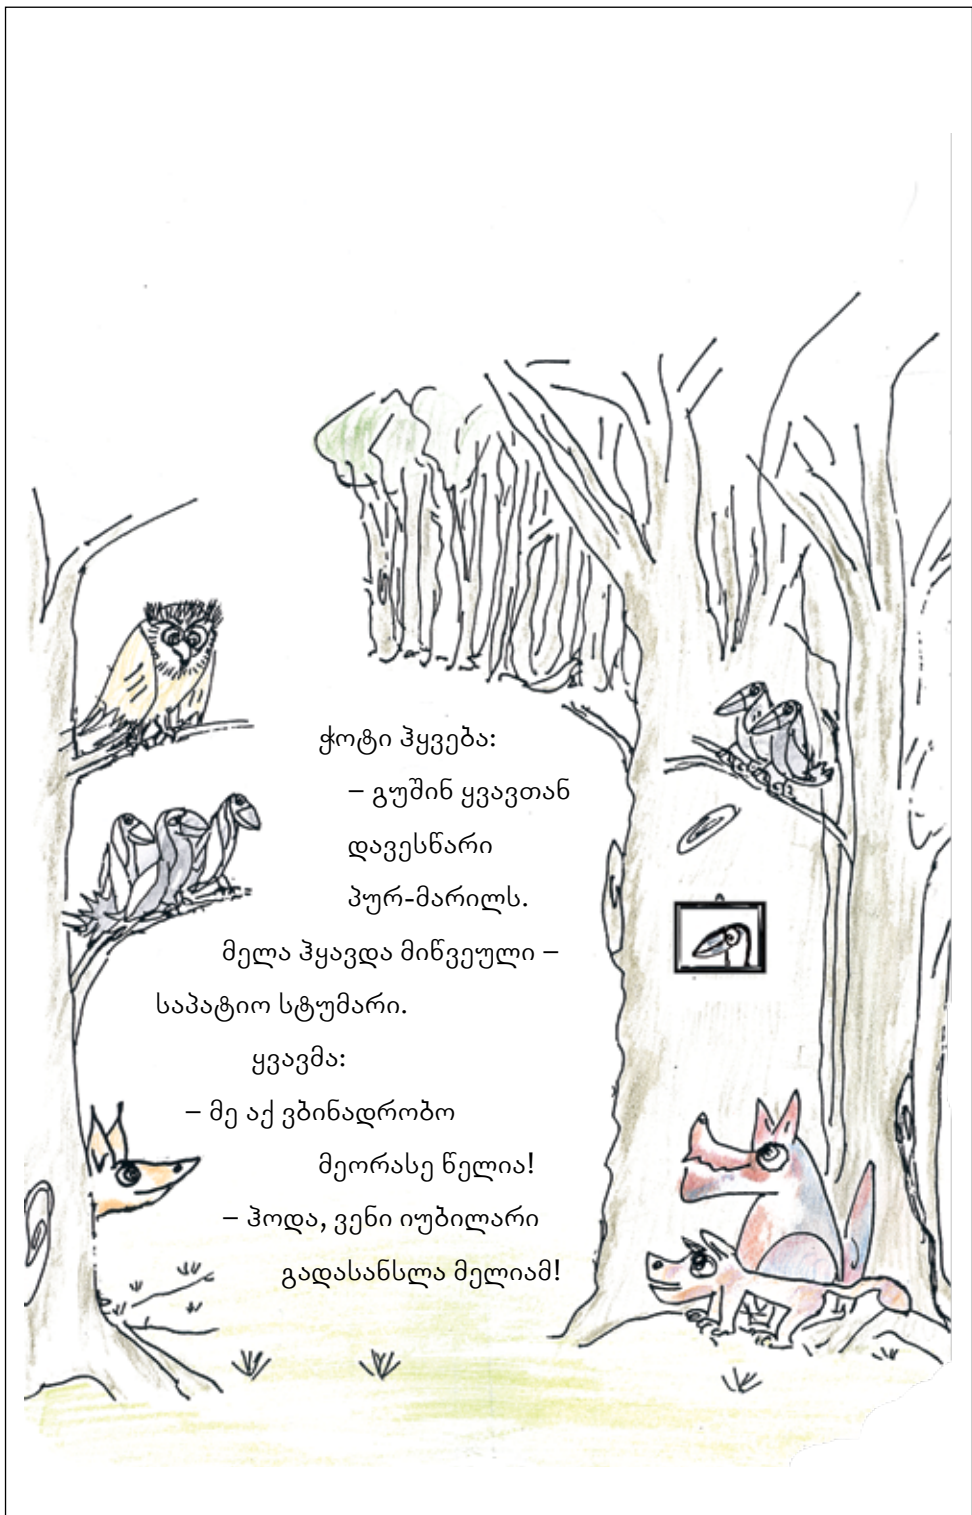 ჭოტი ჰყვება:
– გუშინ ყვავთან
დავესწარი
პურ-მარილს.
მელა ჰყავდა მიწვეული –
საპატიო სტუმარი.
ყვავმა:
– მე აქ ვბინადრობო
მეორასე წელია!
– ჰოდა, ვენი იუბილარი
გადასანსლა მელიამ!